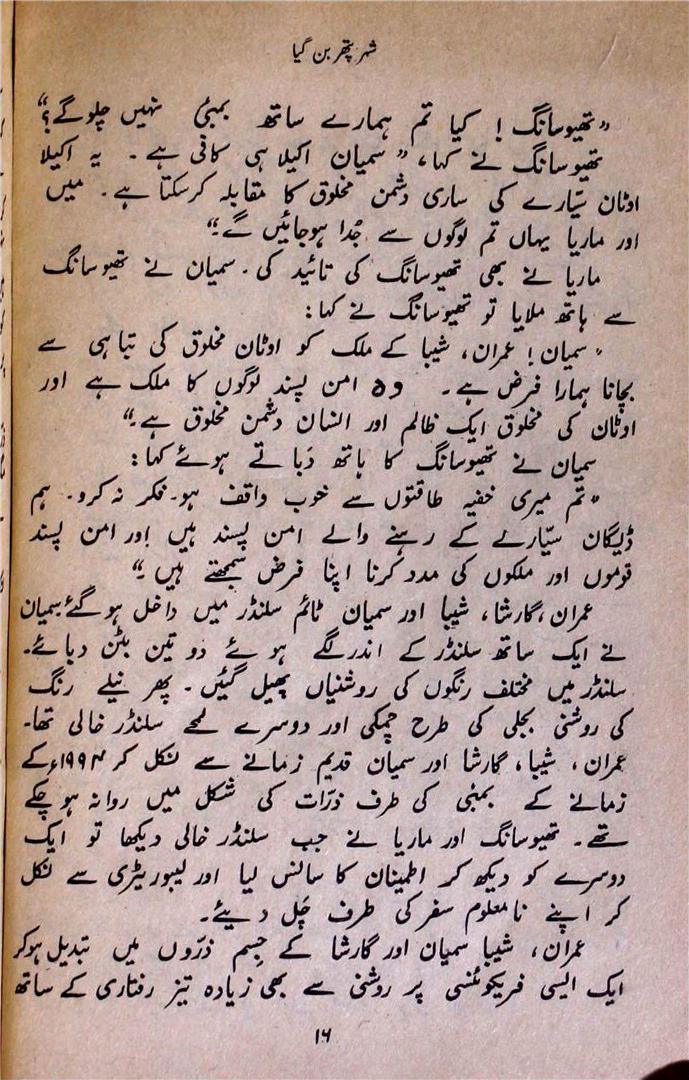 شہر پتھر بن گیا
”تھیوسانگ! کیا تم ہمارے ساتھ بمبئی نہیں چلو گے؟“
تھیوسانگ نے کہا، ”سمیان اکیلا ہی کافی ہے۔ یہ اکیلا
اوٹان سیّارے کی ساری دشمن مخلوق کا مقابلہ کرسکتا ہے۔ میں
اور ماریا یہاں تم لوگوں سے جُدا ہوجائیں گے۔“
ماریا نے بھی تھیوسانگ کی تائید کی۔ سمیان نے تھیوسانگ
سے ہاتھ ملایا تو تھیوسانگ نے کہا:
”سمیان! عمران، شیبا کے ملک کو اوٹان مخلوق کی تباہی سے
بچانا ہمارا فرض ہے۔ وہ امن پسند لوگوں کا ملک ہے اور
اوٹان کی مخلوق ایک ظالم اور انسان دشمن مخلوق ہے۔“
سمیان نے تھیوسانگ کا ہاتھ دَباتے ہوئے کہا:
”تم میری خفیہ طاقتوں سے خوب واقف ہو۔ فکر نہ کرو۔ ہم
ڈیگان سیّارے کے رہنے والے امن پسند ہیں اور امن پسند
قوموں اور ملکوں کی مدد کرنا اپنا فرض سمجھتے ہیں۔“
عمران، گارشا، شیبا اور سمیان ٹائم سلنڈر میں داخل ہو گئے۔ سمیان
نے ایک ساتھ سلنڈر کے اندر لگے ہوئے دو تین بٹن دبائے۔
سلنڈر میں مختلف رنگوں کی روشنیاں پھیل گئیں۔ پھر نیلے رنگ
کی روشنی بجلی کی طرح چمکی اور دوسرے لمحے سلنڈر خالی تھا۔
عمران، شیبا، گارشا اور سمیان قدیم زمانے سے نکل کر ۱۹۹۴ء کے
زمانے کے بمبئی کی طرف ذرّات کی شکل میں روانہ ہوچکے
تھے۔ تھیوسانگ اور ماریا نے جب سلنڈر خالی دیکھا تو ایک
دوسرے کو دیکھ کر اطمینان کا سانس لیا اور لیبوریٹری سے نکل
کر اپنے نامعلوم سفر کی طرف چَل دیئے۔
عمران، شیبا سمیان اور گارشا کے جِسم ذرّوں میں تبدیل ہوکر
ایک ایسی فریکوئنسی پر روشنی سے بھی زیادہ تیز رفتاری کے ساتھ
۱۶